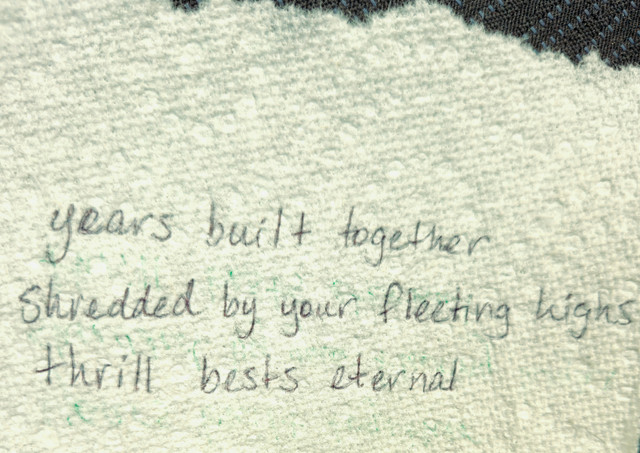 years built together
shredded by your fleeting highs
thrill bests eternal